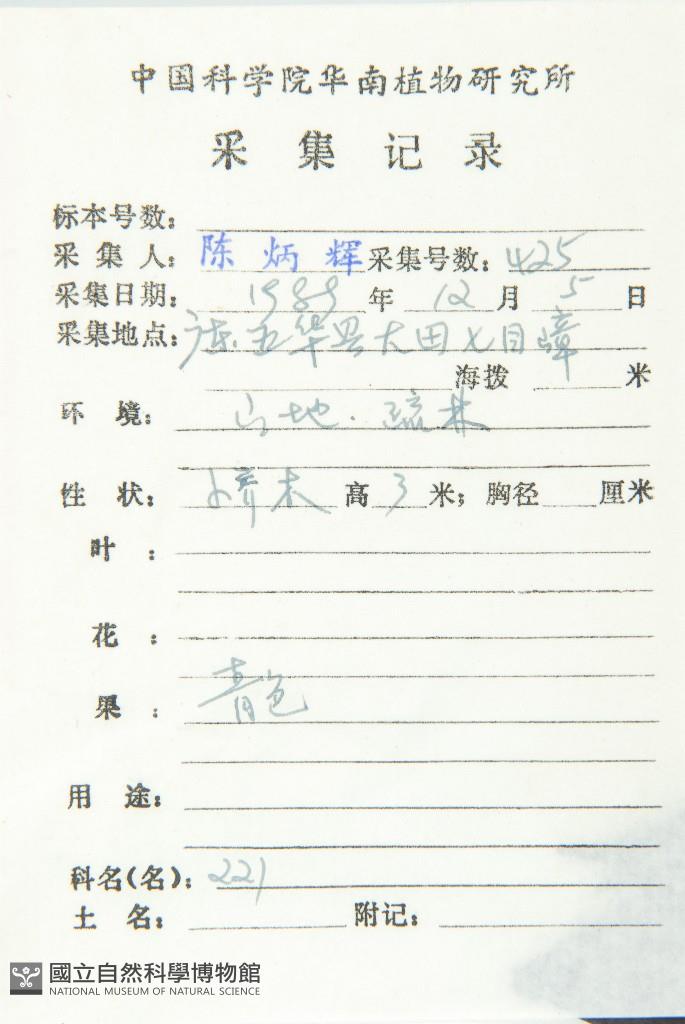 中国科学院华南植物研究所
采集记录
标本号数：
采集人：陈炳辉 采集号数：425
采集日期：1989年12月5日
采集地点：广东五华县大田七目嶂
海拨 米
环境：山地．疏林
性状：小乔木 高3米；胸径 厘米
叶：
花：
果：青色
用途：
科名(名)：221
土名： 附记：
國立自然科學博物館
NATIONAL MUSEUM OF NATURAL SCIENCE